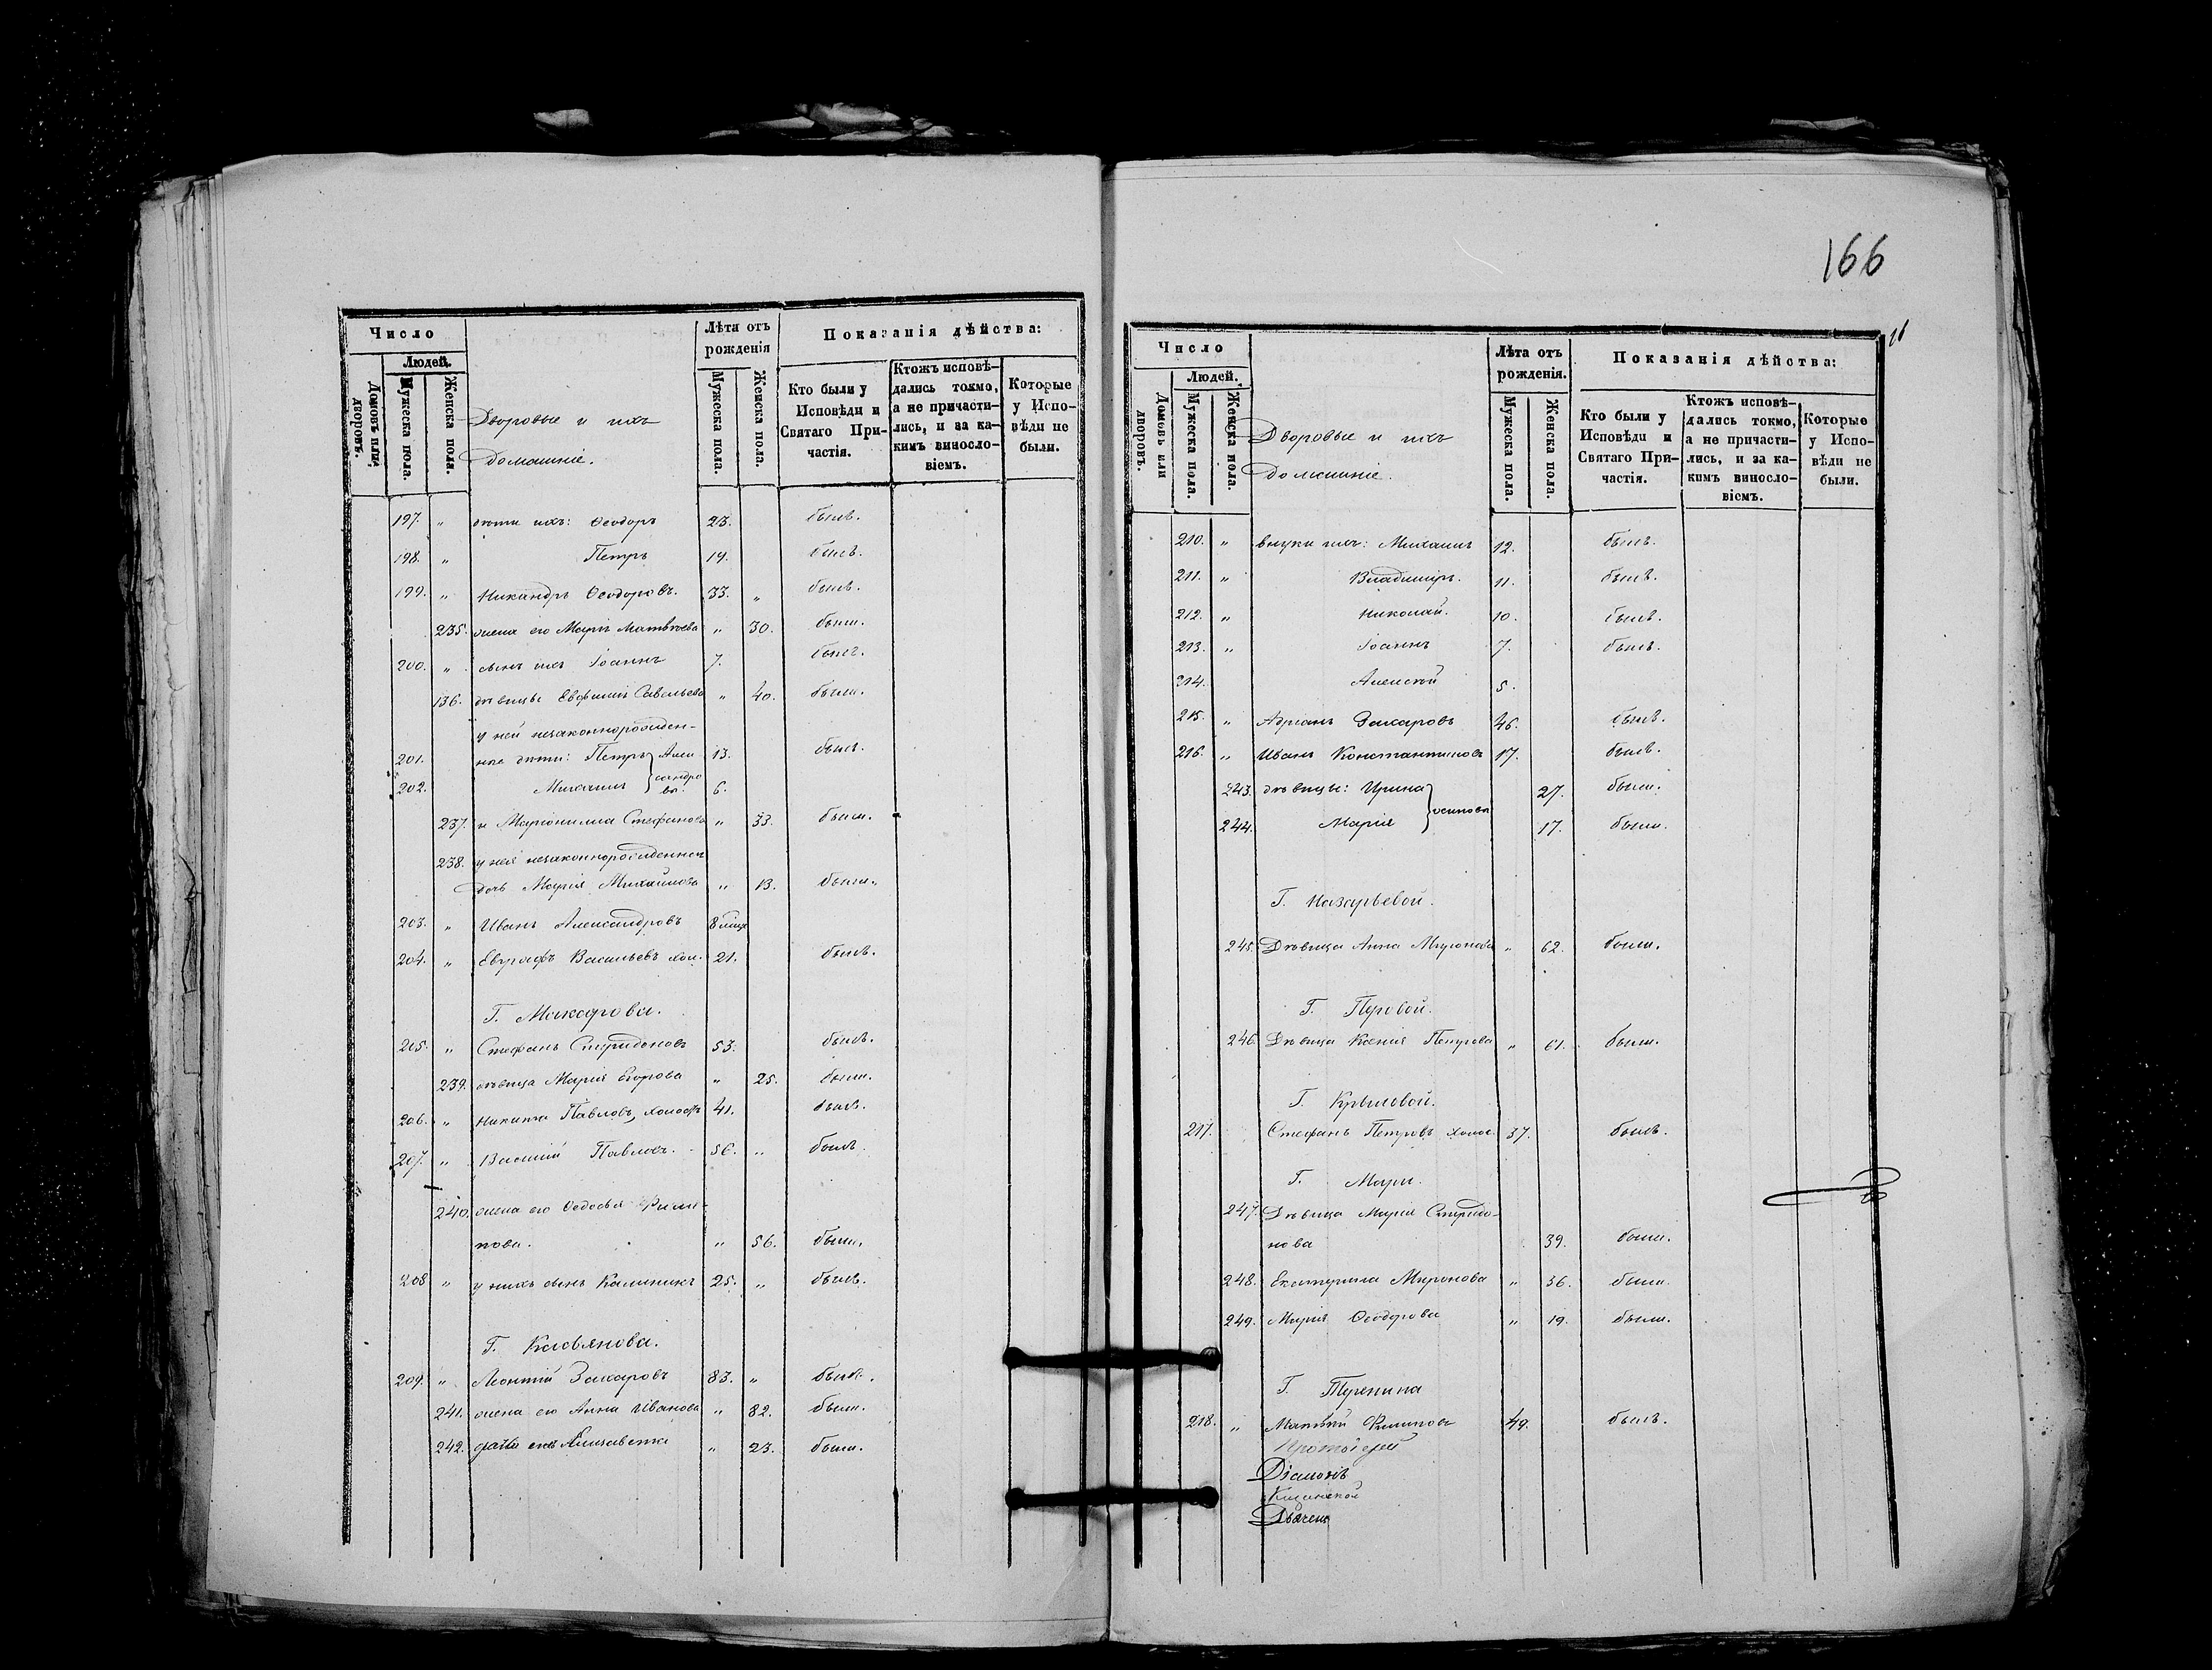 166
Число
Людей.
Домовъ или дворовъ.
Мужеска пола.
Женска пола.
Дворовые и ихъ
домашніе.
Лѣта отъ
рожденія
Мужеска пола.
Женска пола.
Показанія дѣйства:
Кто были у
Исповѣди и
Святаго При-
частія.
Ктожъ исповѣ-
дались токмо,
а не причасти-
лись, и за ка-
кимъ винослo-
віемъ.
Которые
у Испо-
вѣди не
были.
197. „ дѣти ихъ: Ѳеодоръ 23. былъ.
198. „ Петръ 19. былъ.
199. „ Никандръ Ѳеодоровъ. 33. „ былъ.
235. жена его Марія Матвѣева „ 30. была.
200. „ сынъ ихъ Іоаннъ 7. былъ.
136. дѣвицы Евфимія Савельева „ 40. была.
у ней незаконнорожден-
201. ные дѣти: Петръ Алек 13. былъ.
202. Михаилъ сандро вы. 6.
237. и Маріонилла Стефанова „ 33. была.
238. у ней незаконнорожденная
дочь Марія Михайлова „ 13. была.
203. „ Иванъ Александровъ 8 мѣся
204. „ Евграфъ Васильевъ хол. 21. былъ.
Г. Макарова.
205. „ Стефанъ Спиридоновъ 53. былъ.
239. дѣвица Марія Егорова „ 25. была.
206. „ Никита Павловъ, холостъ 41. былъ.
207. „ Василій Павловъ. 56. „ былъ.
240. жена его Ѳедосья Филип-
пова. „ 56. была.
208 „ у нихъ сынъ Калинникъ 25. „ былъ.
Г. Касьянова.
209. „ Леонтій Захаровъ 83. „ былъ.
241. жена его Анна Иванова „ 82. была.
242. Елизавета „ 23. была.
Число
Людей.
Домовъ или дворовъ.
Мужеска пола.
Женска пола.
Дворовые и ихъ
домашніе.
Лѣта отъ
рожденія.
Мужеска пола.
Женска пола.
Показанія дѣйства:
Кто были у
Исповѣди и
Святаго При-
частія.
Ктожъ исповѣ-
дались токмо,
а не причасти-
лись, и за ка-
кимъ винослo-
віемъ.
Которые
у Испо-
вѣди не
были.
210. „ внуки ихъ: Михаилъ 12. былъ.
211. „ Владиміръ. 11. былъ.
212. „ Николай. 10. былъ.
213. „ Іоаннъ 7. былъ.
214. Алексѣй 5.
215. „ Адріанъ Захаровъ 46. былъ.
216. „ Иванъ Константиновъ 17. былъ.
243. дѣвицы: Ирина 27. была.
Осиповы
244. Марія 17. была.
Г. Назарьевой.
245. Дѣвица Анна Миронова „ 62. была.
Г. Пуровой.
246. Дѣвица Ксенія Петрова „ 61. была.
Г. Крыловой.
217. Стефанъ Петровъ холос. 37. былъ.
Г. Мари.
247. Дѣвица Марія Спиридо-
нова 39. была.
248. Екатерина Миронова „ 36. была.
249. Марія Ѳеодорова „ 19. была.
Г. Туренина
218. „ Матвѣй Филиповъ 49. былъ.
Протоіерей
Діаконъ
Дьячекъ